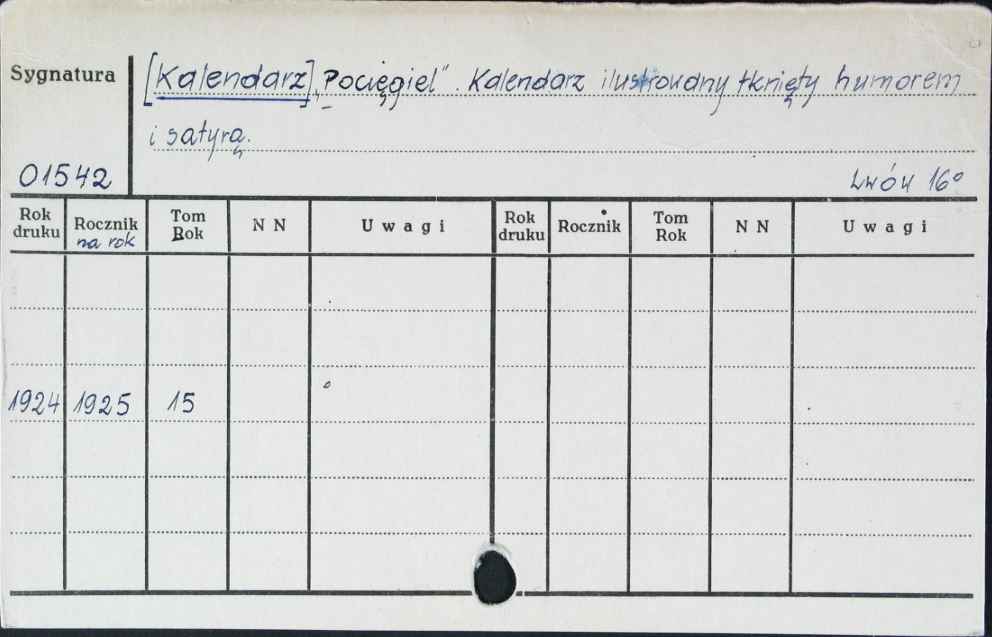 Sygnatura
[Kalendarz] „Pocięgiel". Kalendarz ilustrowany tknięty humorem
i satyrą.
01542
Lwów 16°
Rok druku Rocznik na rok Tom Rok N N Uwagi Rok druku Rocznik Tom Rok N N Uwagi
1924 1925 15